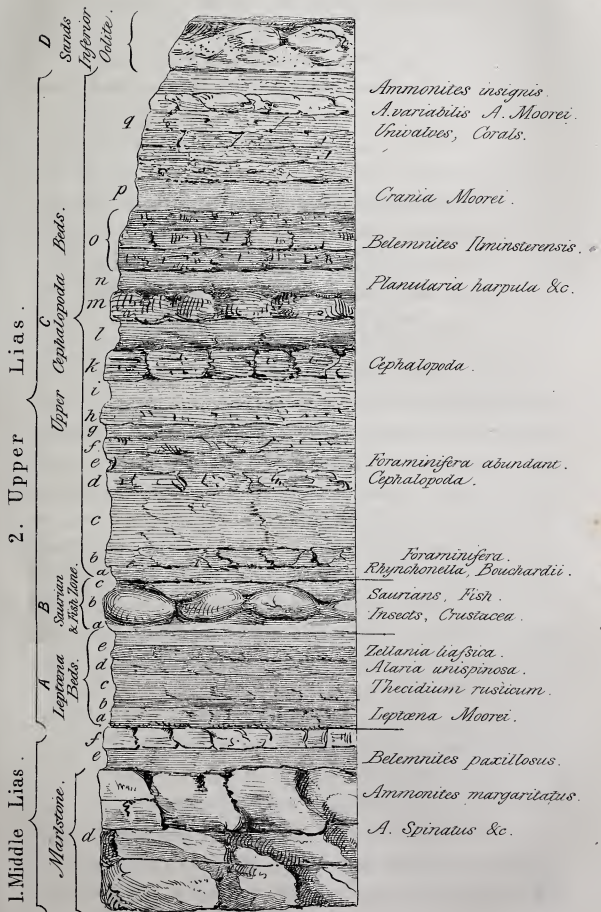 D
Sands
Inferior
Oolite.
2. Upper Lias.
C
Upper Cephalopoda Beds.
B
Saurian
& Fish Zone.
A
Leptæna
Beds.
1. Middle Lias.
Marlstone.
q
p
o
n
m
l
k
i
h
g
f
e
d
c
b
a
c
b
a
e
d
c
b
a
f
e
d
Ammonites insignis.
A. variabilis A. Moorei.
Univalves, Corals.
Crania Moorei.
Belemnites Ilminsterensis.
Planularia harpula &c.
Cephalopoda.
Foraminifera abundant.
Cephalopoda.
Foraminifera.
Rhynchonella, Bouchardii.
Saurians, Fish.
Insects, Crustacea.
Zellania liassica.
Alaria unispinosa.
Thecidium rusticum.
Leptæna Moorei.
Belemnites paxillosus.
Ammonites margaritatus.
A. Spinatus &c.